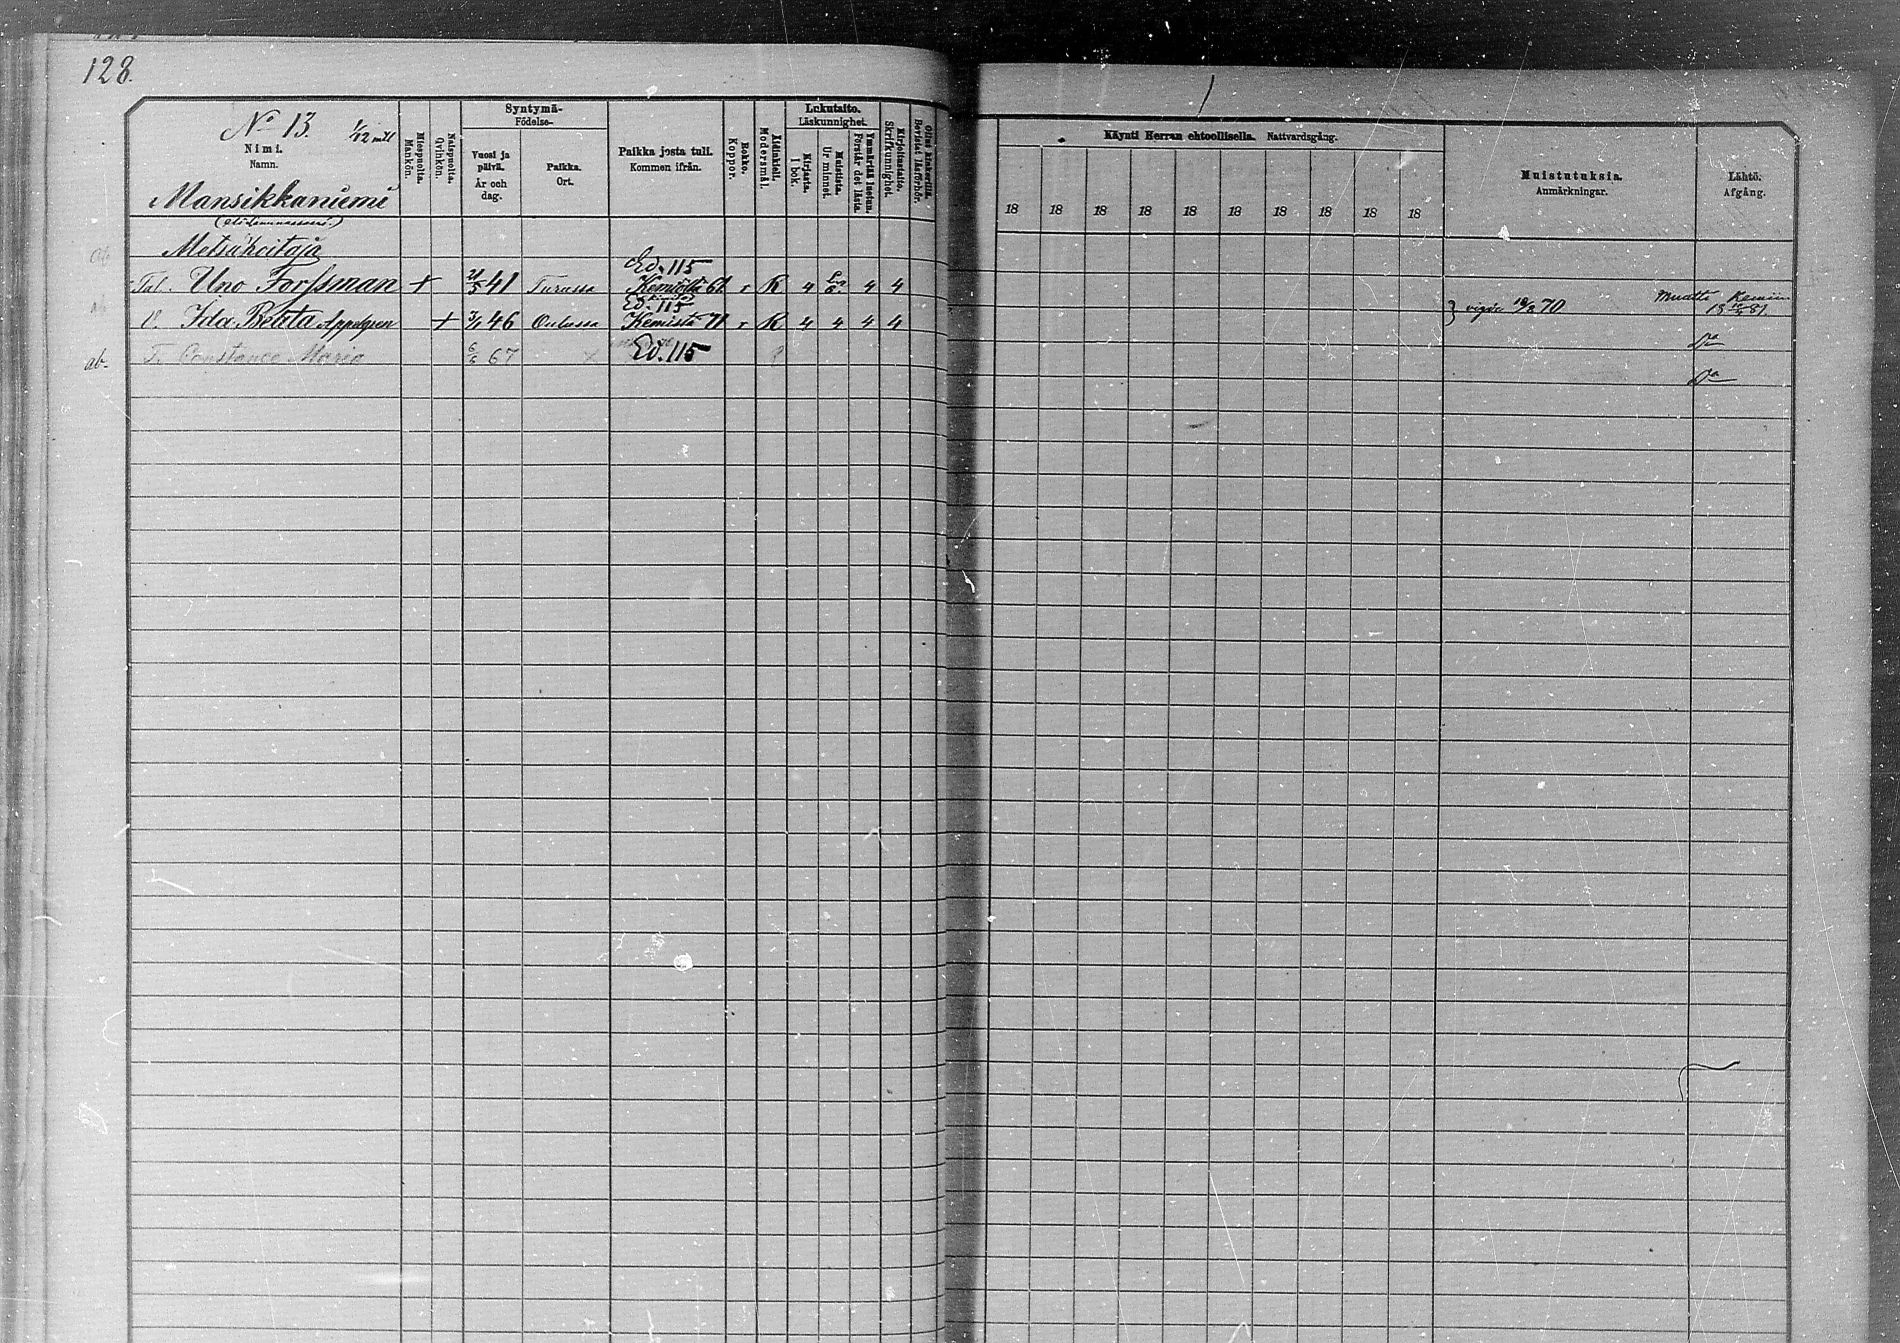 128.
No 13. 1/12 mtl
Nimi.
Namn.
Mansikkaniemi
Miespuolta.
Mankön.
Naispuolta.
Qvinkön.
Syntymä-
Födelse-
Vuosi ja päivä.
År och dag.
Paikka.
Ort.
Paikka josta tuli.
Kommen ifrån.
Rokko.
Koppor.
Äidinkieli.
Modersmål.
Lukutaito.
Läskunnighet.
Kirjasta.
I bok.
Muistista.
Ur minnet.
Ymmärtää luetun.
Förstår det lästa.
Kirjoitustaito.
Skrifkunnighet.
Ollut kinkerillä.
Bevistat läsförhör.
Käynti Herran ehtoollisella. Nattvardsgång.
18 18 18 18 18 18 18 18 18 18
Muistutuksia.
Anmärkningar.
Lähtö.
Afgång.
Metsähoitaja
Ed. 115
Tal. Uno Forssman + 41 Turussa Kemiöltä 61 r R 4 4 4
Ed. 115
v. Ida Berta Appelgren + 46 Oulussa Kemistä 71 r R 4 4 4 4
} vigde 18/8 70
Muutti Kemiin
ab. T. Constance Maria 6/6 67 Ed. 115
Da
Da